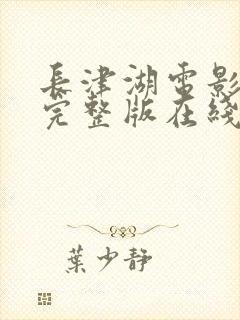 長津湖電影
完整版在綫
葉少靜